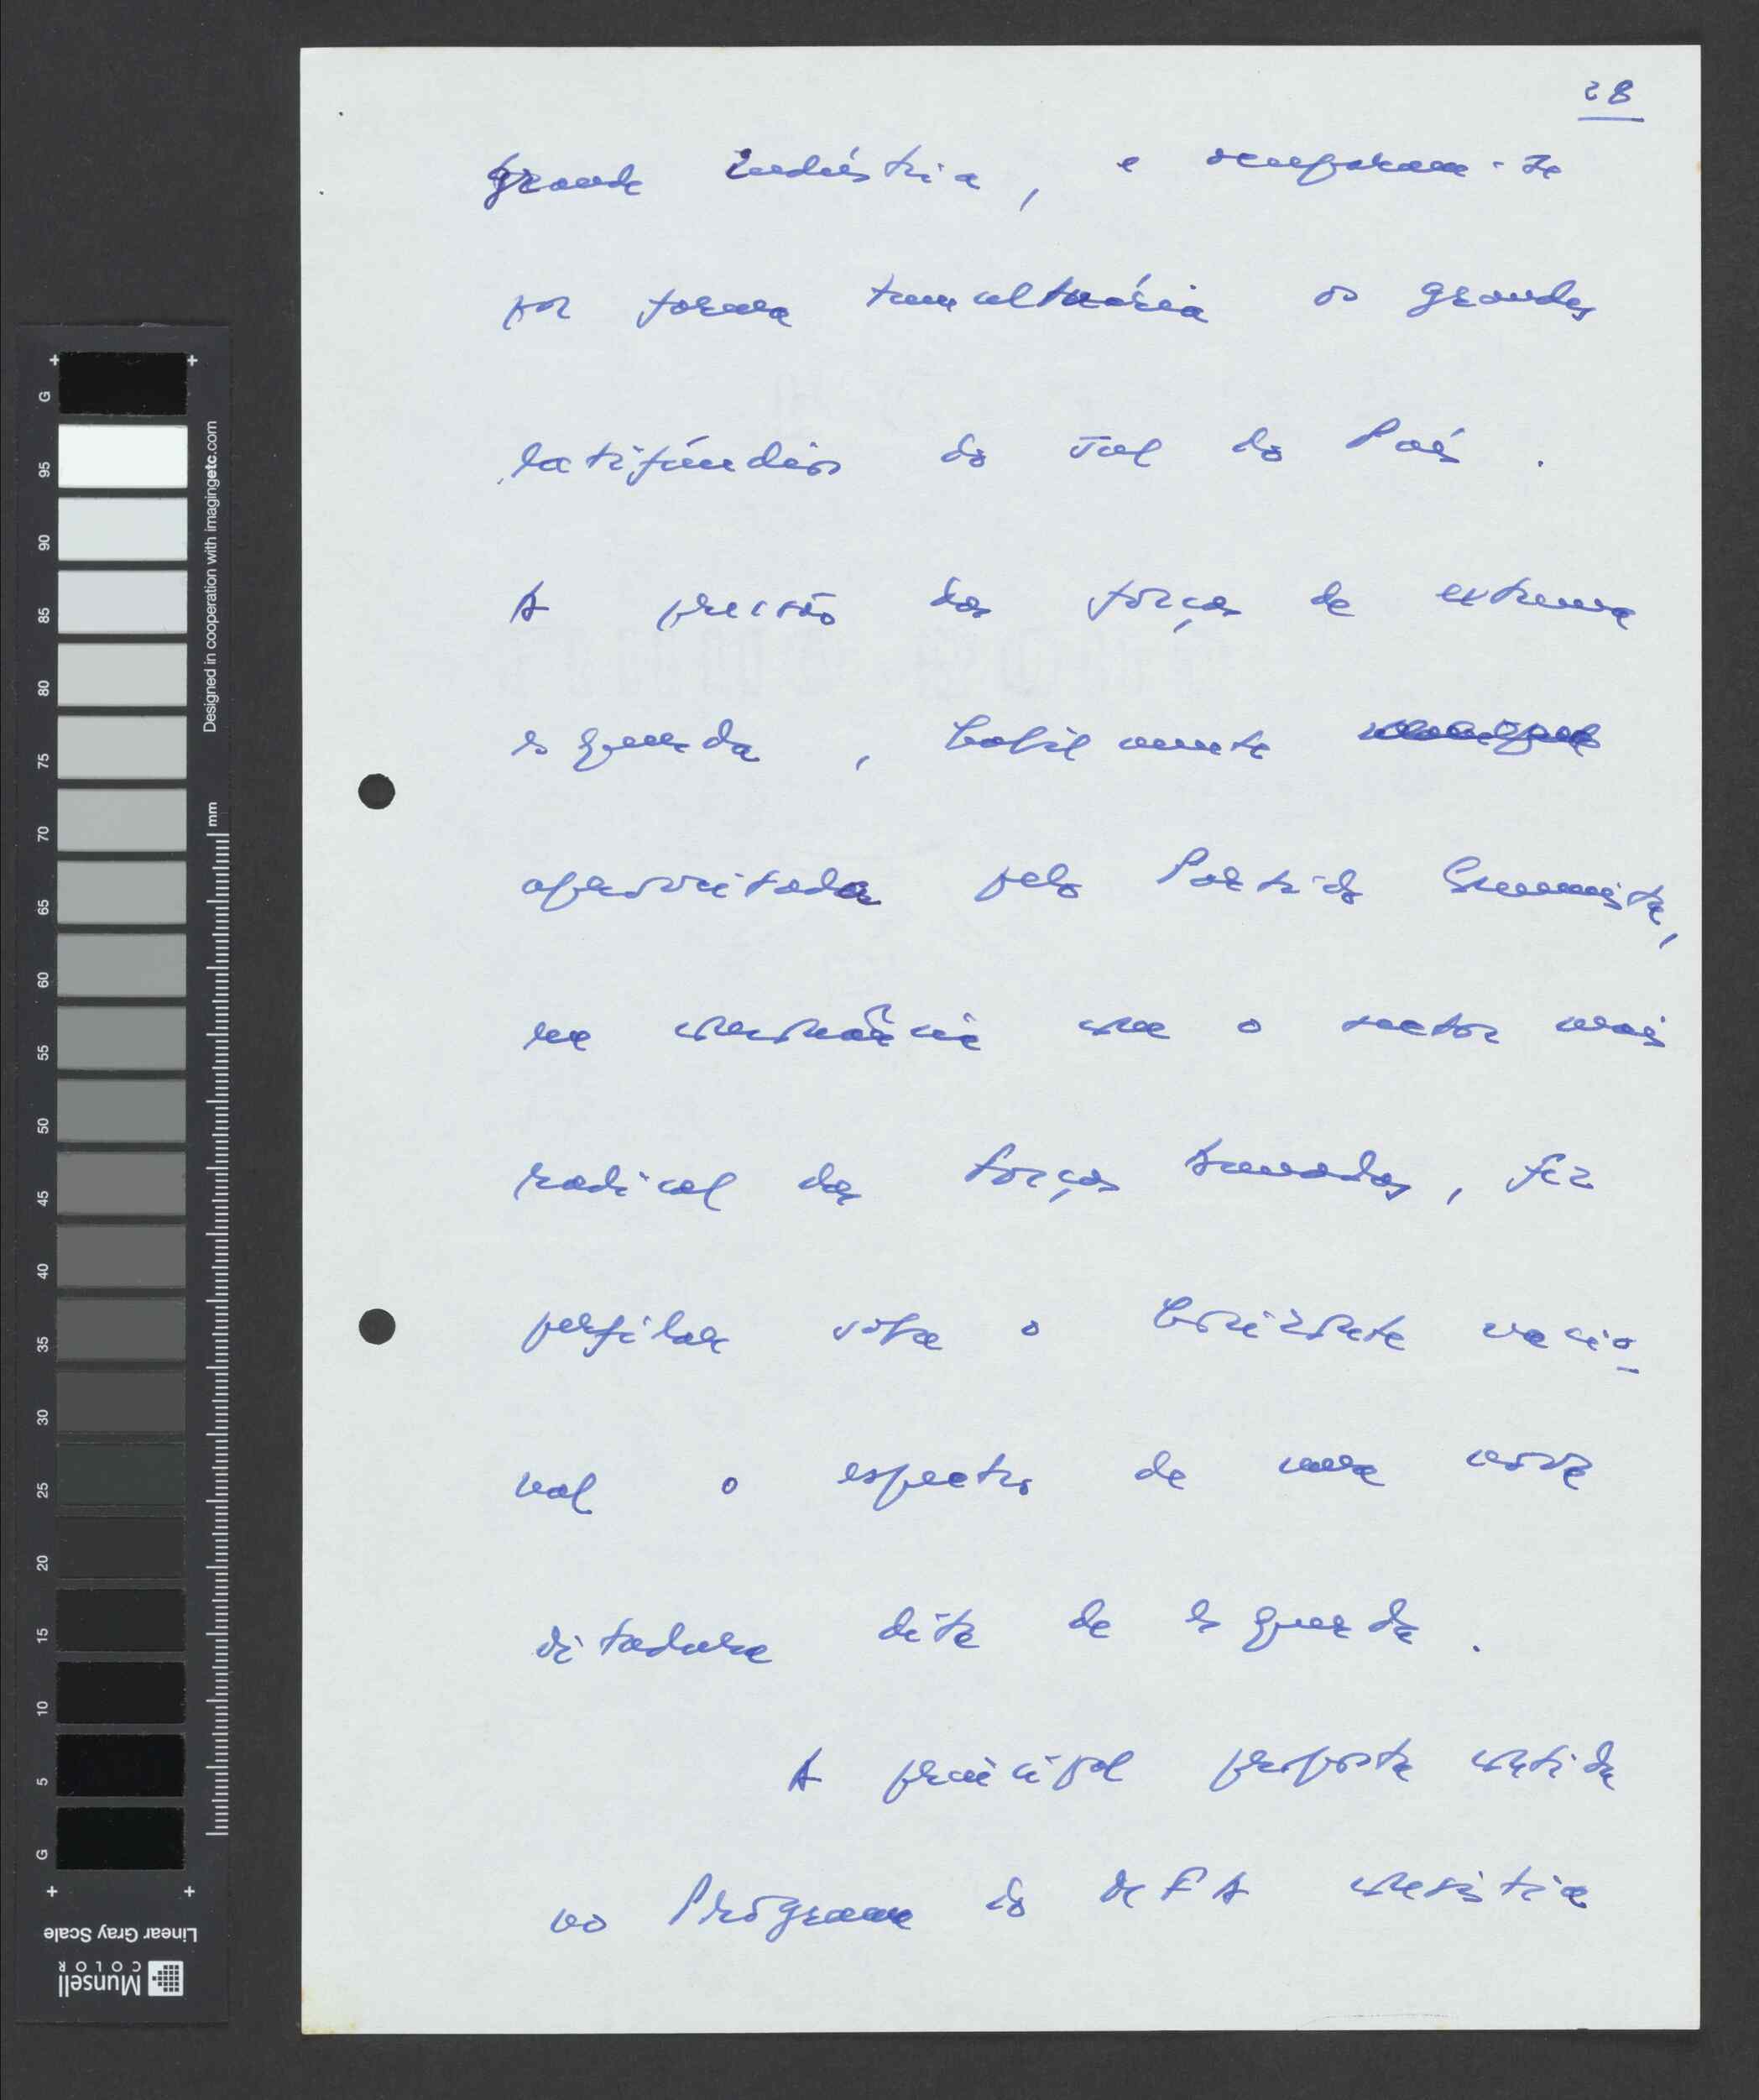 28
grande indústria, e ocuparam-se
por forma tumultuária os grandes
latifúndios do Sul do País.
A pressão das forças de extrema
esquerda, habilmente
aproveitada pelo Partido Comunista,
em consonância com o sector mais
radical das Forças Armadas, fez
perfilar sobre o horizonte nacio-
nal o espectro de uma nova
ditadura dita de esquerda.
A principal proposta contida
no Programa do MFA consistia
G
95
90
85
80
75
70
65
60
55
50
45
40
35
30
25
20
15
10
5
G
Designed in cooperation with imagingetc.com
mm
Linear Gray Scale
Munsell
COLOR